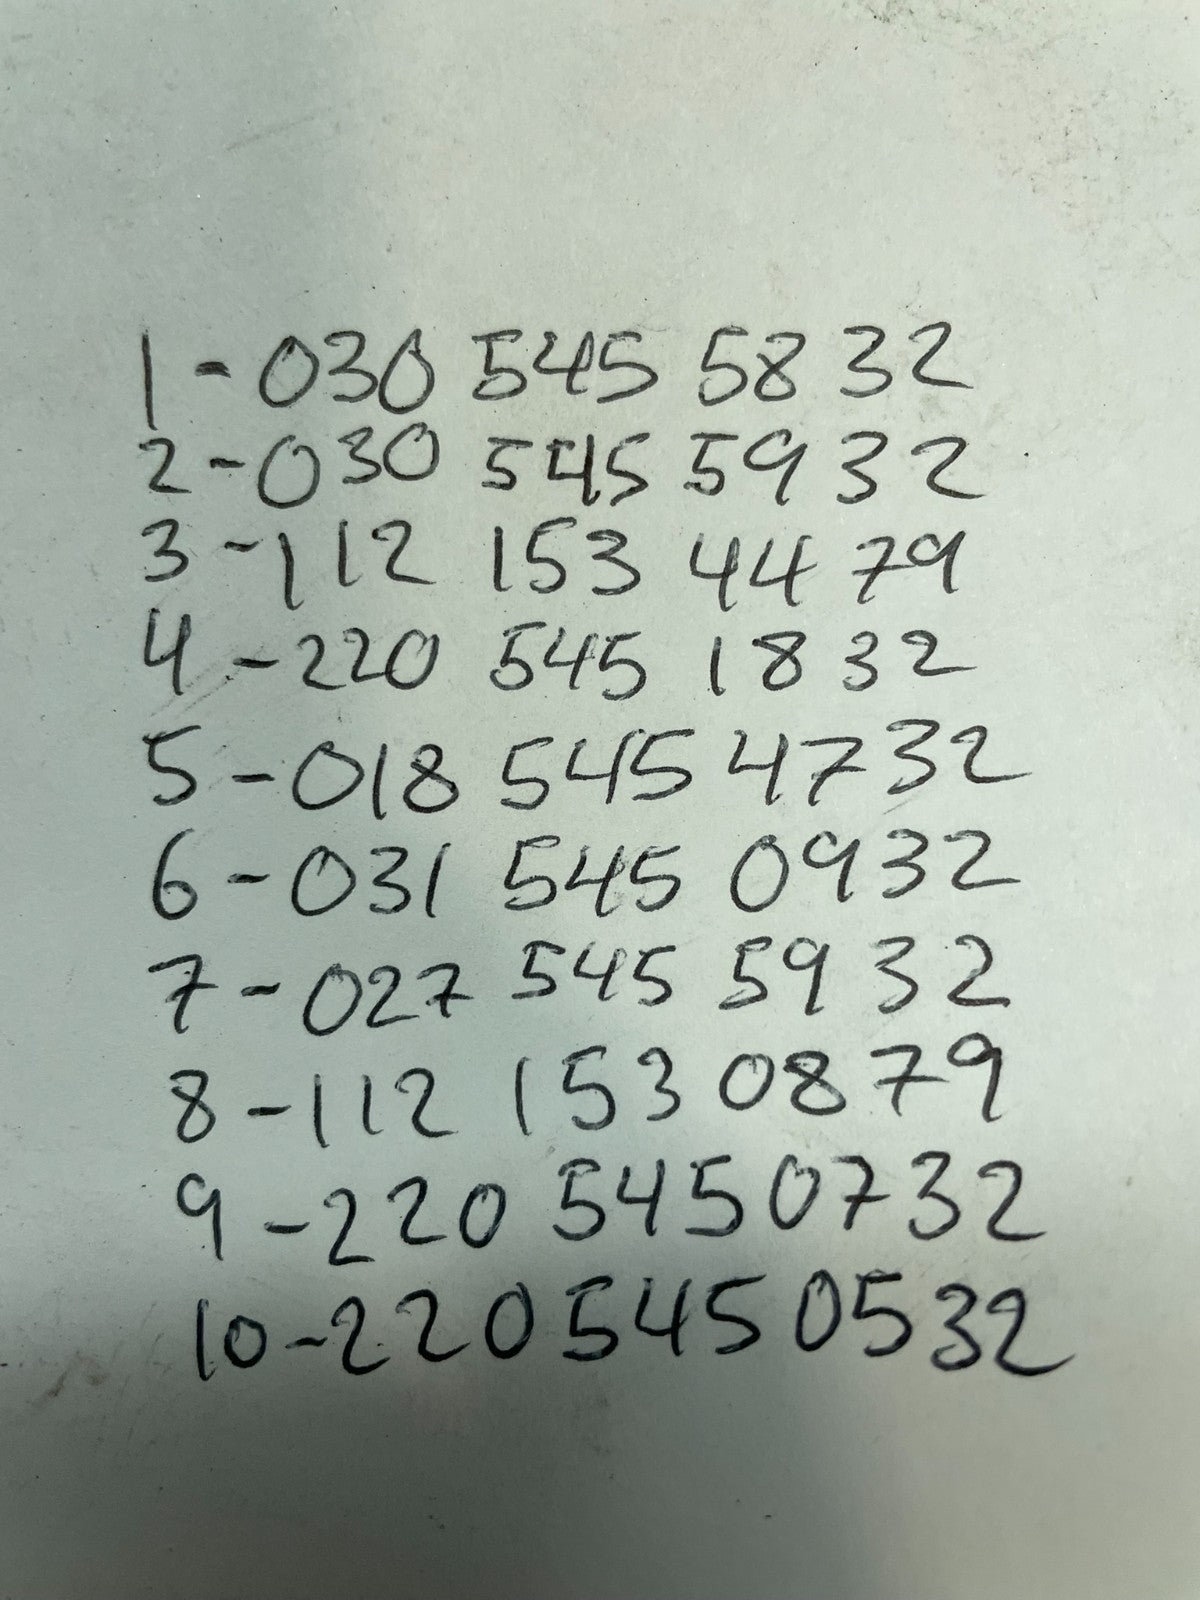 1 - 030 545 58 32
2 - 030 545 59 32
3 - 112 153 44 79
4 - 220 545 18 32
5 - 018 545 4732
6 - 031 545 0932
7 - 027 545 59 32
8 - 112 153 08 79
9 - 220 545 0732
10 - 220 545 0532